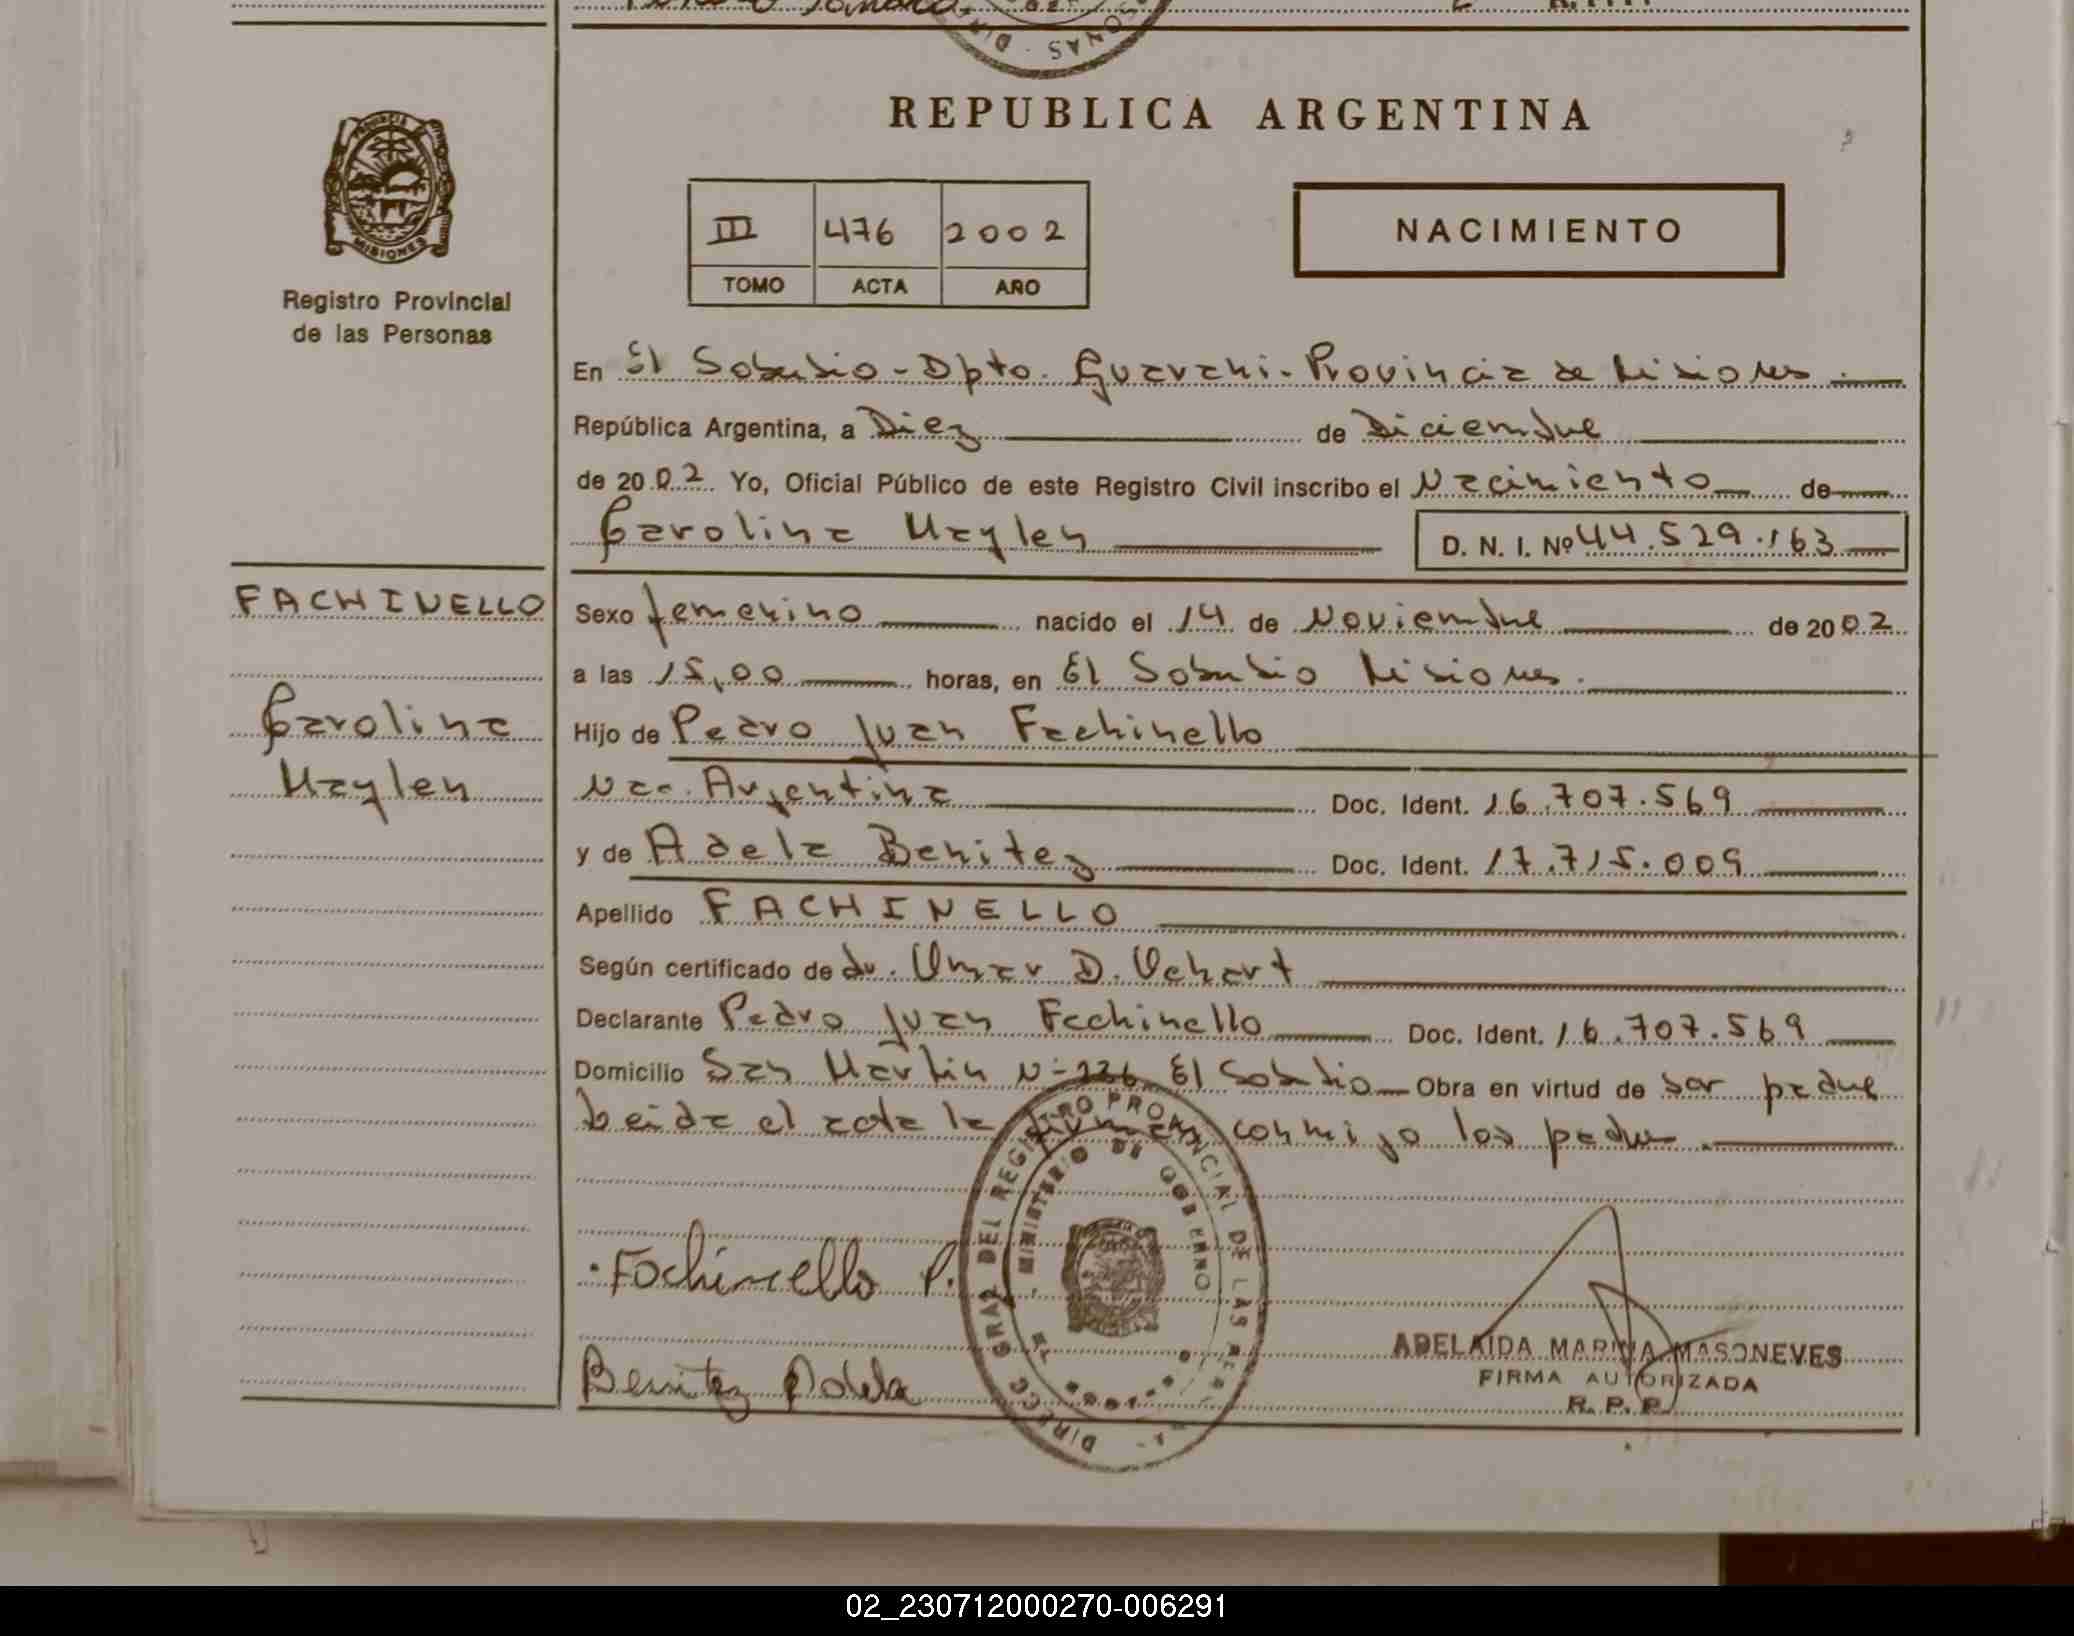 REPUBLICA ARGENTINA
PROVINCIA DE
MISIONES
Registro Provincial
de las Personas
III 476 2002
TOMO ACTA AÑO
NACIMIENTO
En El Soberbio - Dpto. Guarani - Provincia de Misiones.
República Argentina, a Diez de Diciembre
de 2002 Yo, Oficial Público de este Registro Civil inscribo el Nacimiento de
Carolina Maylen D. N. I. Nº 44.529.163
FACHINELLO
Carolina
Maylen
Sexo femenino nacido el 14 de Noviembre de 2002
a las 15,00 horas, en El Soberbio Misiones.
Hijo de Pedro Juan Fachinello
Nac. Argentina Doc. Ident. 16.707.569
y de Adela Benitez Doc. Ident. 17.715.009
Apellido FACHINELLO
Según certificado de dr. Omar D.
Declarante Pedro Juan Fachinello Doc. Ident. 16.707.569
Domicilio San Martin N- 236 El Soberbio Obra en virtud de ser padre
Leida el acta la firman conmigo los padres.
Fachinello P.
Benitez Adela
DIRECC. GRAL DEL REGISTRO PROVINCIAL DE LAS PERSONAS
MINISTERIO DE GOBIERNO
ADELAIDA MARINA MASONEVES
FIRMA AUTORIZADA
R. P. P.
02_230712000270-006291